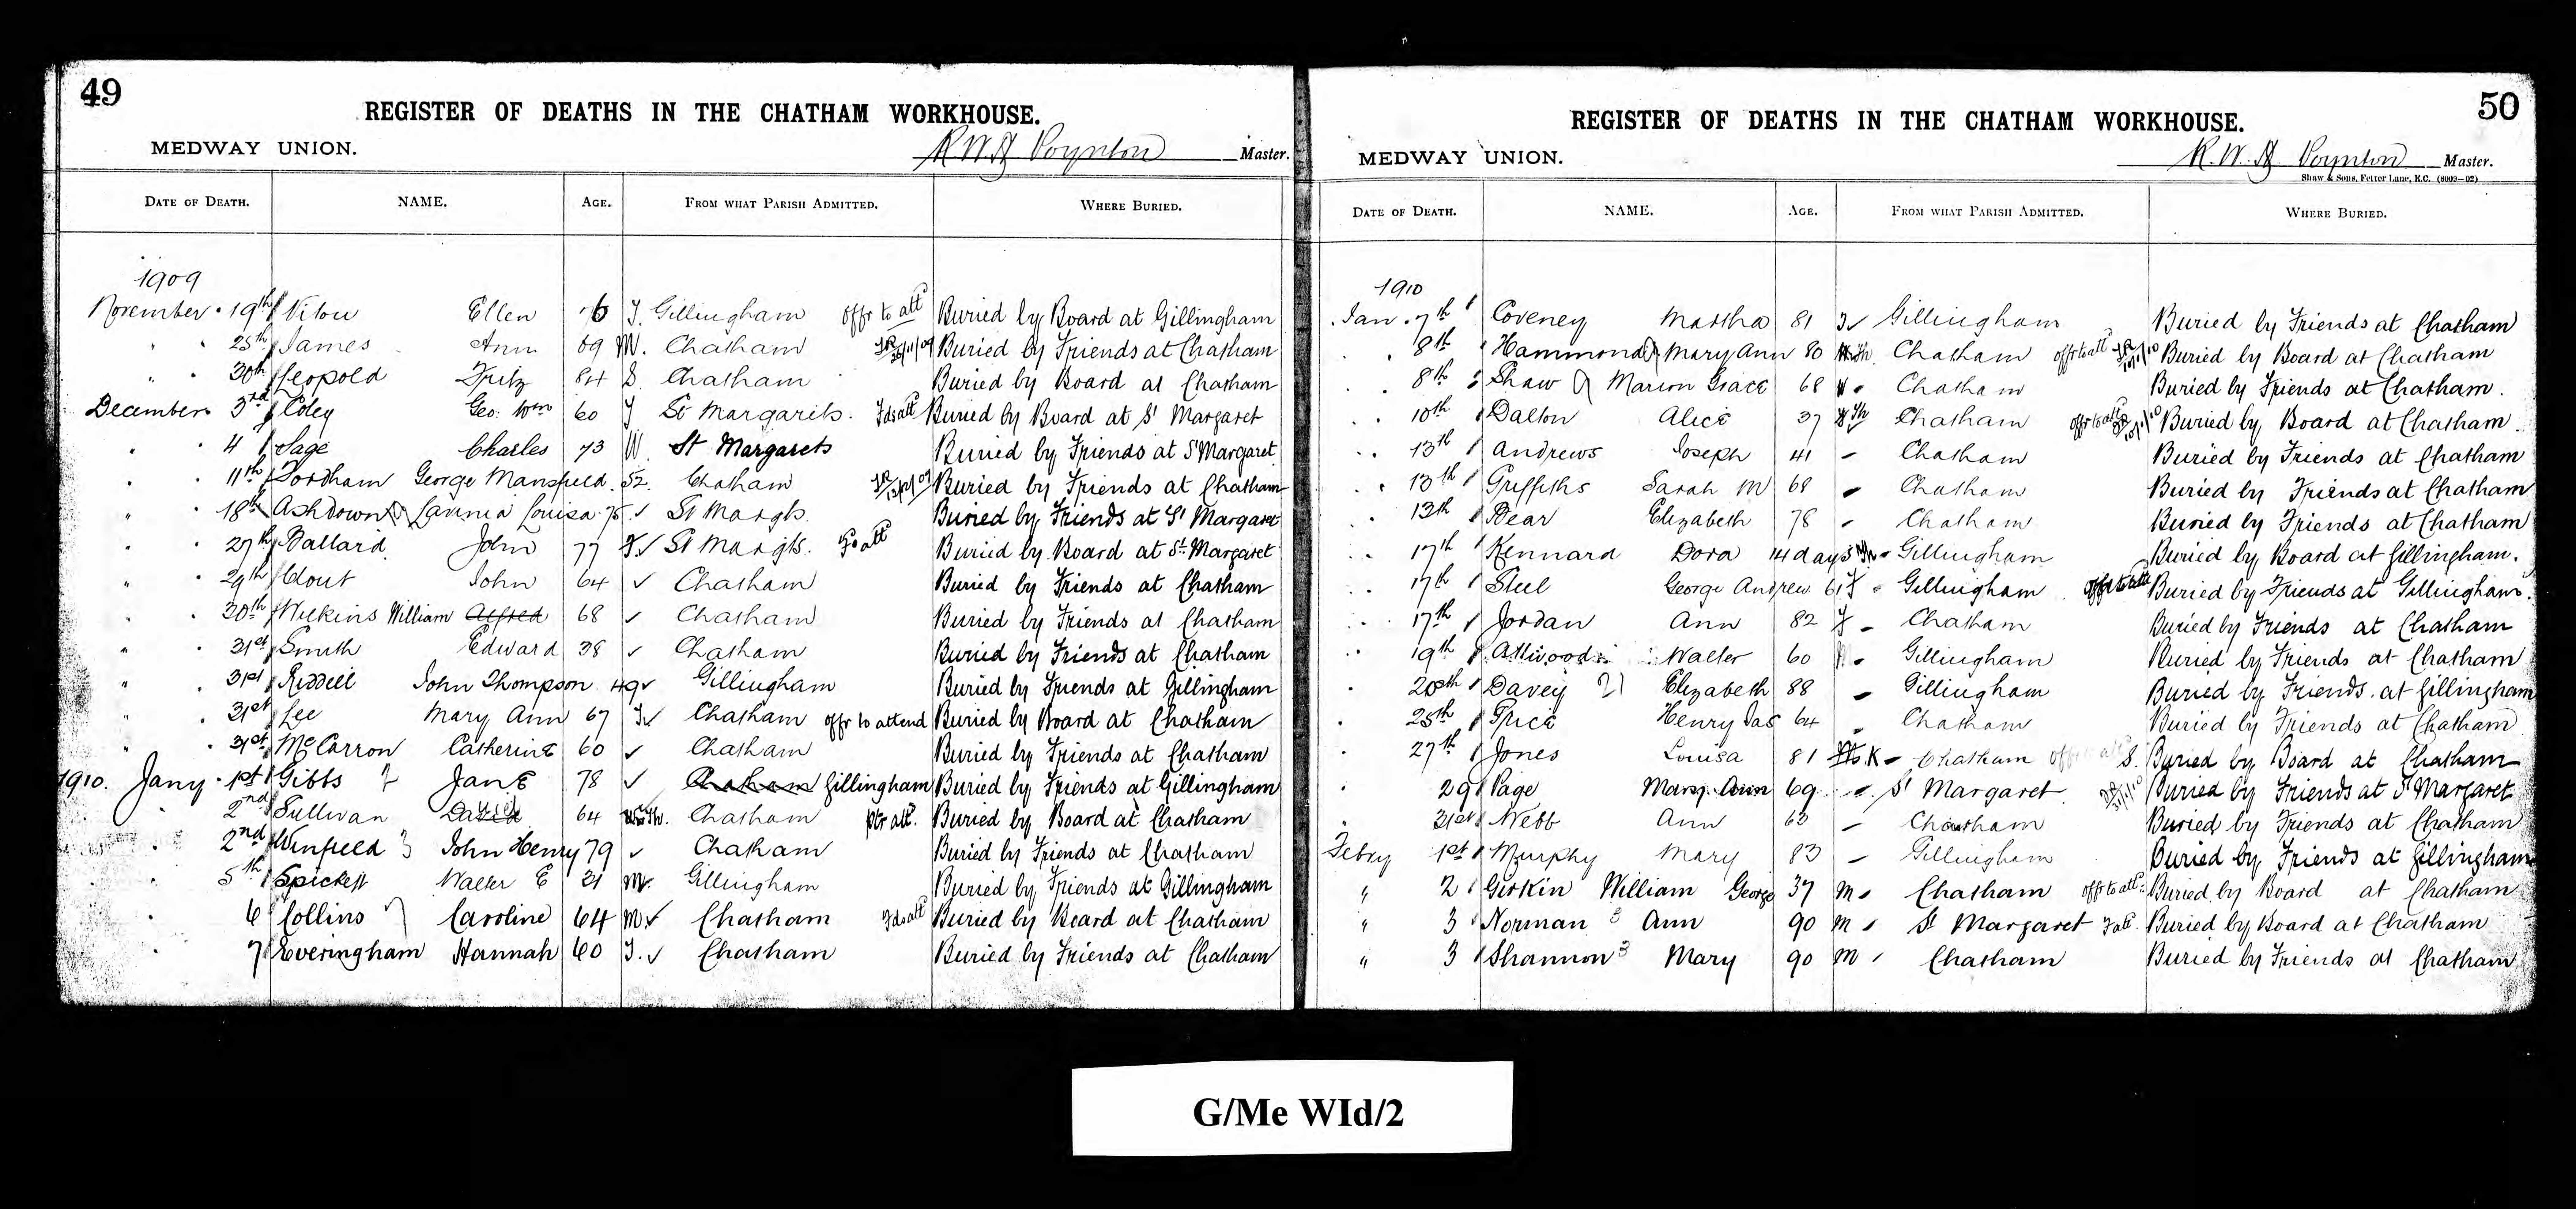 49
REGISTER OF DEATHS IN THE CHATHAM WORKHOUSE.
MEDWAY UNION. R W Poynton Master.
DATE OF DEATH. NAME. AGE. FROM WHAT PARISH ADMITTED. WHERE BURIED.
1909
November 19th Ellen Gillingham offr to att Buried by Board at Gillingham
25th James Ann 69 M. Chatham 26/11/09 Buried by Friends at Chatham
30th Leopold Fritz 84 S. Chatham Buried by Board at Chatham
December 3rd Coley Geo: Wm 60 St Margarets. Fds att Buried by Board at St Margaret
4 Sage Charles 73 W. St Margarets Buried by Friends at St Margaret
11th Fordham George Mansfield. 52. Chatham Buried by Friends at Chatham
18th Ashdown Lavinia Louisa 75 ✓ St Margts. Buried by Friends at St Margaret
27th Ballard John 77 ✓ St Margts. Buried by Board at St. Margaret
29th Clout John 64 ✓ Chatham Buried by Friends at Chatham
30th Wilkins William Alfred 68 ✓ Chatham Buried by Friends at Chatham
31st Smith Edward 38 ✓ Chatham Buried by Friends at Chatham
31st Riddell John Thompson 49 ✓ Gillingham Buried by Friends at Gillingham
31st Lee Mary Ann 67 ✓ Chatham offr to attend Buried by Board at Chatham
31st McCarron Catherine 60 ✓ Chatham Buried by Friends at Chatham
1910. Jany 1st Gibbs Jane 78 ✓ Chatham Gillingham Buried by Friends at Gillingham
2nd Sullivan David 64 Chatham Buried by Board at Chatham
2nd Winfield John Henry 79 ✓ Chatham Buried by Friends at Chatham
5th Spickett Walter E 21 M. Gillingham Buried by Friends at Gillingham
6 Collins Caroline 64 M ✓ Chatham Fds att Buried by Board at Chatham
7 Everingham Hannah 60 ✓ Chatham Buried by Friends at Chatham
50
REGISTER OF DEATHS IN THE CHATHAM WORKHOUSE.
MEDWAY UNION. R. W. Poynton Master.
Shaw & Sons, Fetter Lane, E.C. (8009-02)
DATE OF DEATH. NAME. AGE. FROM WHAT PARISH ADMITTED. WHERE BURIED.
1910
Jan. 7th Coveney Martha 81 ✓ Gillingham Buried by Friends at Chatham
8th Hammond Mary Ann 80 Chatham offr to att Buried by Board at Chatham
8th Shaw Marion Grace 68 Chatham Buried by Friends at Chatham.
10th Dalton Alice 37 Chatham offr to att Buried by Board at Chatham.
13th Andrews Joseph 41 Chatham Buried by Friends at Chatham
13th Griffiths Sarah M 68 Chatham Buried by Friends at Chatham
13th Bear Elizabeth 78 Chatham Buried by Friends at Chatham
17th Kennard Dora 14 days Gillingham Buried by Board at Gillingham.
17th Steel George Andrew 61 Gillingham offr to att Buried by Friends at Gillingham.
17th Jordan Ann 82 Chatham Buried by Friends at Chatham
19th Attwood Walter 60 Gillingham Buried by Friends at Chatham
20th Davey Elizabeth 88 Gillingham Buried by Friends at Gillingham
25th Price Henry Jas 64 Chatham Buried by Friends at Chatham
27th Jones Louisa 81 Chatham Buried by Board at Chatham
29 Page Mary Ann 69 St Margaret Buried by Friends at St Margaret
31st Webb Ann 63 Chatham Buried by Friends at Chatham
Febry 1st Murphy Mary 83 Gillingham Buried by Friends at Gillingham
2 Girkin William George 37 M Chatham offr to att Buried by Board at Chatham
3 Norman Ann 90 M St Margaret Buried by Board at Chatham
3 Shannon Mary 90 M Chatham Buried by Friends at Chatham
G/Me WId/2